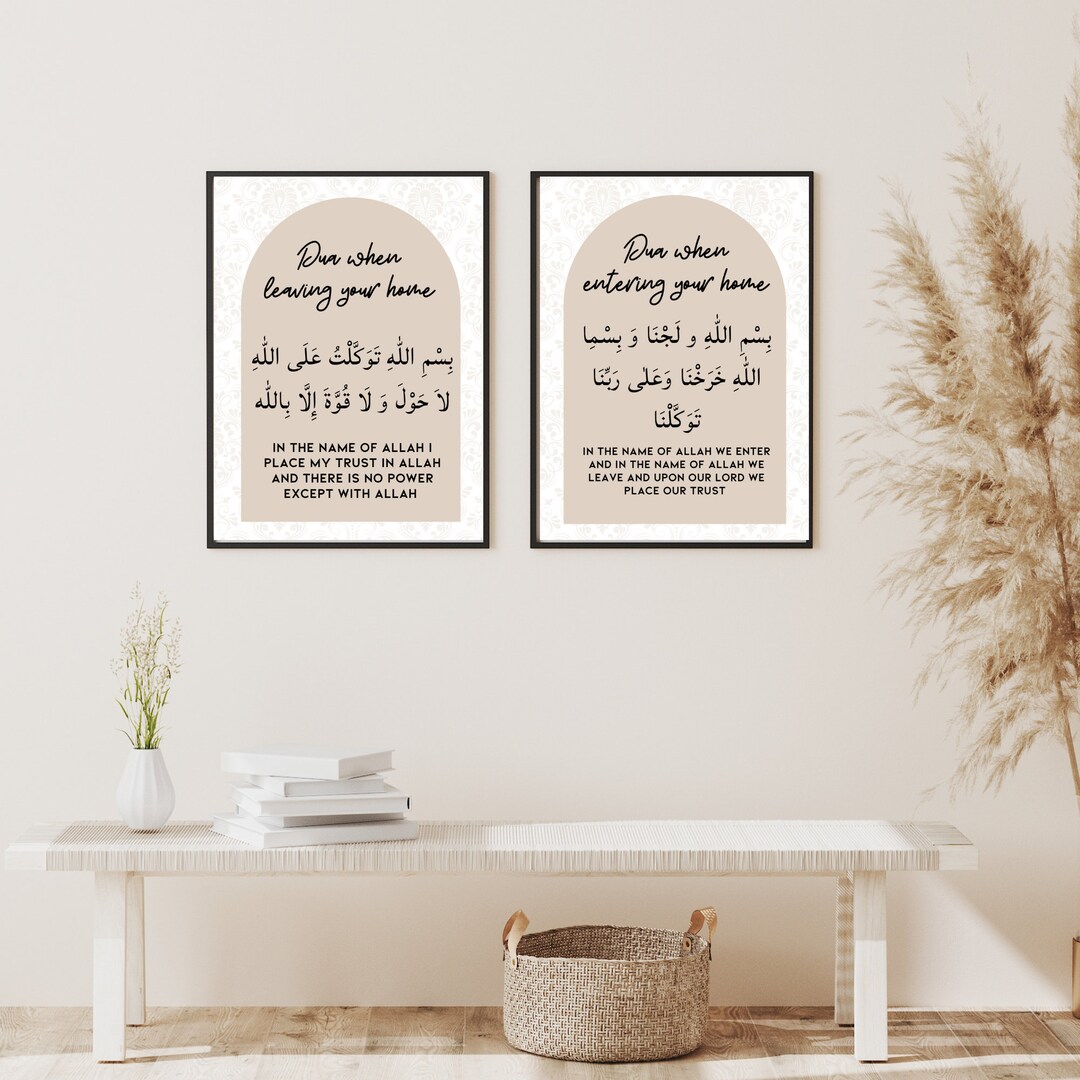 Dua when
leaving your home
بِسْمِ اللهِ تَوَكَّلْتُ عَلَى اللهِ
لاَ حَوْلَ وَ لَا قُوَّةَ إِلَّا بِالله
IN THE NAME OF ALLAH I
PLACE MY TRUST IN ALLAH
AND THERE IS NO POWER
EXCEPT WITH ALLAH
Dua when
entering your home
بِسْمِ اللهِ و لَجْنَا وَ بِسْمِا
اللهِ خَرَخْنَا وَعَلٰى رَبِّنَا
تَوَكَّلْنَا
IN THE NAME OF ALLAH WE ENTER
AND IN THE NAME OF ALLAH WE
LEAVE AND UPON OUR LORD WE
PLACE OUR TRUST